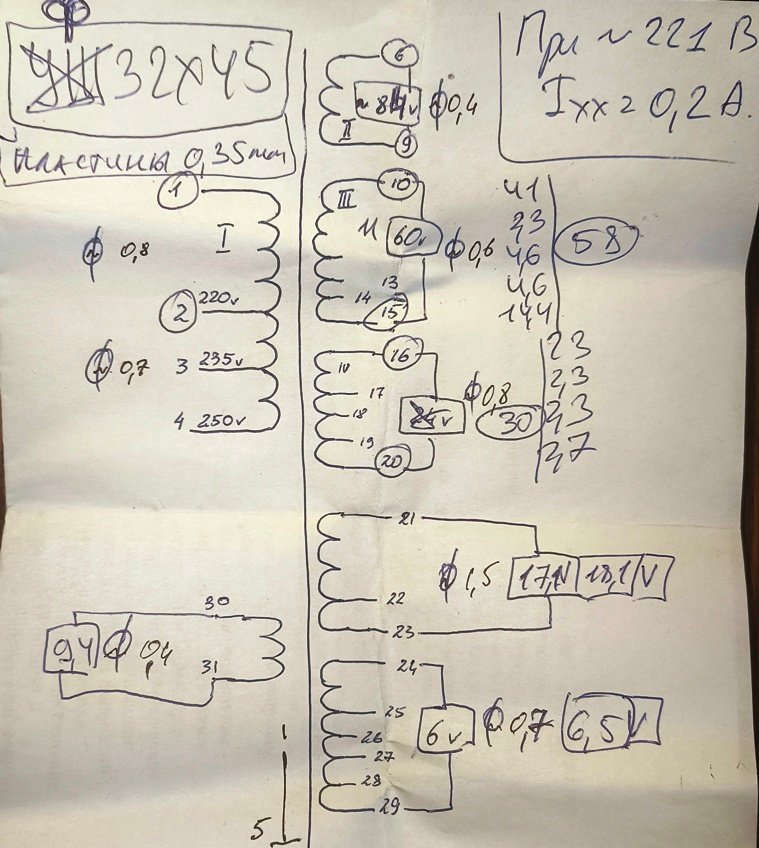 32x45
Пластины 0,35mm
При ~ 221 В
Ixx = 0,2 А.
1
I
φ 0,8
2
220v
φ 0,7
3 235v
4 250v
6
II
φ 0,4
9
10
III
11
60v
φ 0,6
13
14
15
41
2,3
4,6
4,6
14,4
58
16
17
18
19
20
φ 0,8
30
2,3
2,3
2,3
2,7
21
22
23
φ 1,5
17,1V
18,1 V
30
31
9,4
φ 0,4
24
25
26
27
28
29
6v
φ 0,7
6,5 V
5